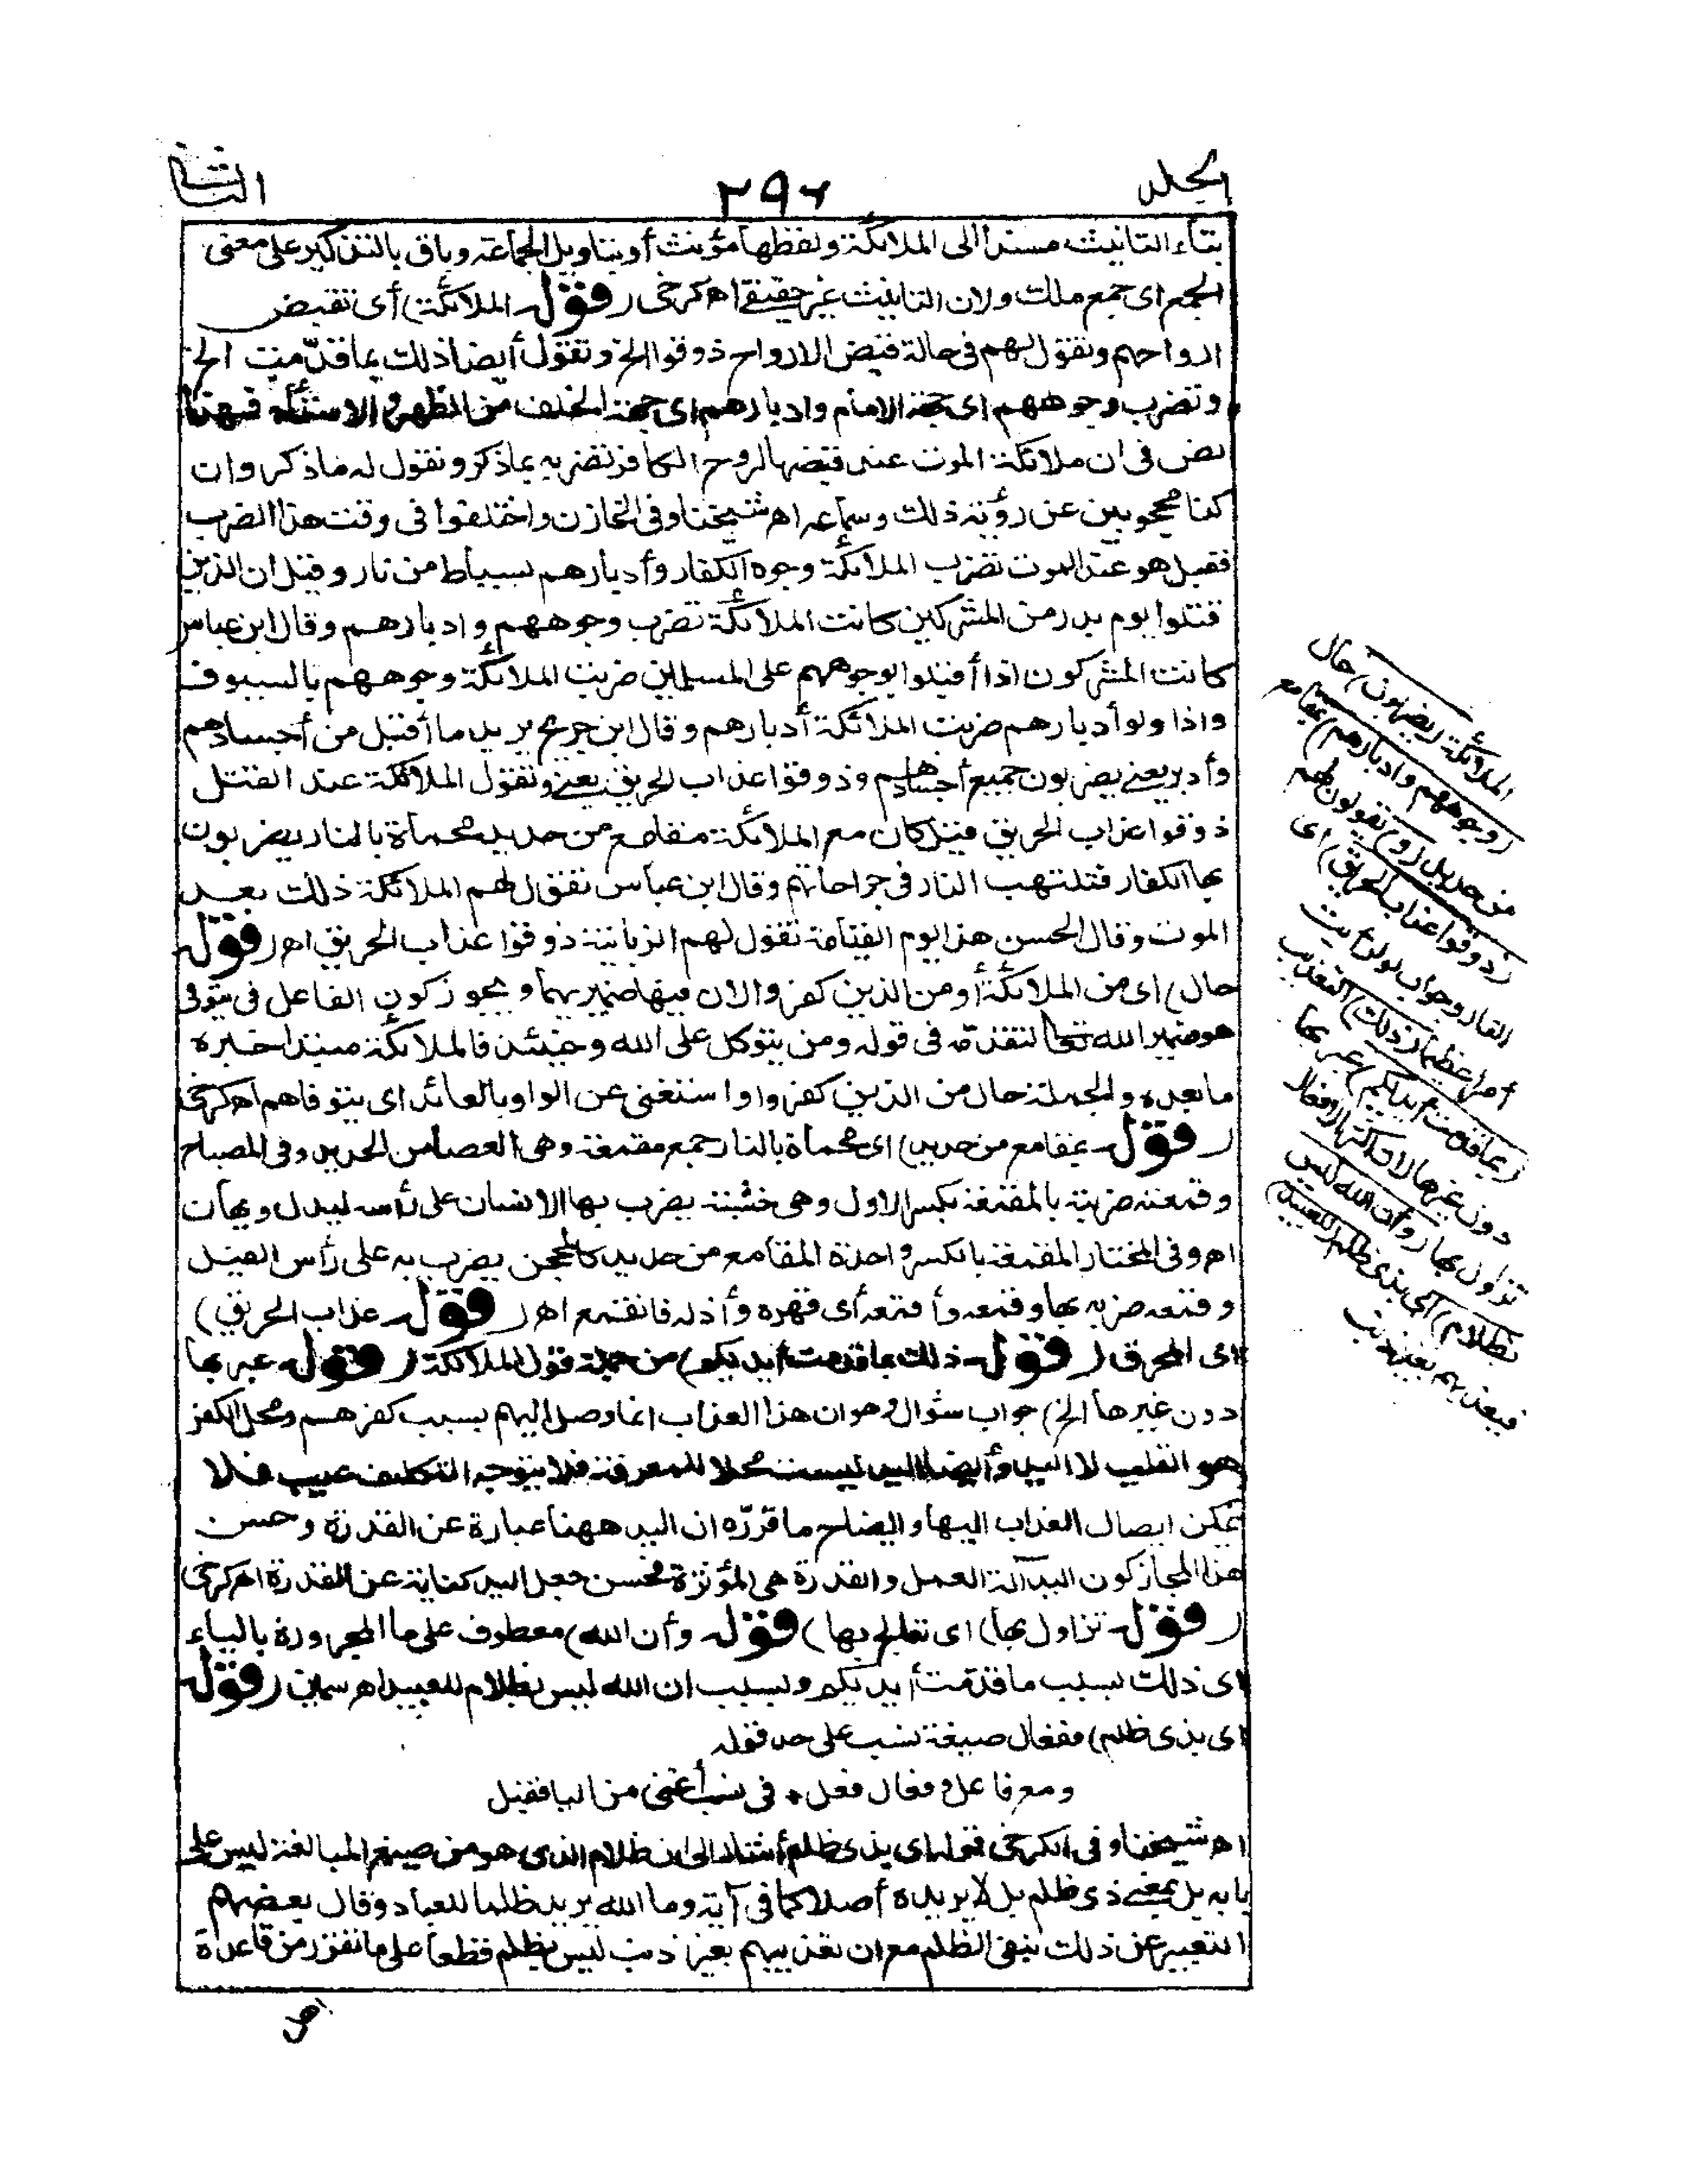 الجلد
٢٩٦
الثانى
بتاء التانيث مسندا الى الملائكة ولفظها مؤنث أو بتاويل الجماعة وباق بالتذكير على معنى
الجمع اى جمع ملك ولان التانيث غير حقيقى اه كرخى (قوله الملائكة) أى تقبض
ارواحهم وتقول لهم فى حالة قبض الارواح ذوقوا الخ وتقول أيضا ذلك بما قدّمت الخ
وتضرب وجوههم اى جهة الامام وادبارهم اى جهة الخلف من الظهر والاستاه فهذا
نص فى ان ملائكة الموت عند قبضها لروح الكافر تضربه بماذكر وتقول له ماذكر وان
كنا محجوبين عن رؤية ذلك وسماعه اه شيخنا وفى الخازن واختلفوا فى وقت هذا الضرب
فقيل هو عند الموت تضرب الملائكة وجوه الكفار وأدبارهم بسياط من نار وقيل ان الذين
قتلوا يوم بدر من المشركين كانت الملائكة تضرب وجوههم وادبارهم وقال ابن عباس
كانت المشركون اذا أقبلوا بوجوههم على المسلمين ضربت الملائكة وجوههم بالسيوف
واذا ولوا أدبارهم ضربت الملائكة أدبارهم وقال ابن جريج يريد ما أقبل من أجسادهم
وأدبر يعنى يضربون جميع أجسادهم وذوقوا عذاب الحريق يعنى وتقول الملائكة عند القتل
ذوقوا عذاب الحريق قيل كان مع الملائكة مقامع من حديد محماة بالنار يضربون
بها الكفار فتلتهب النار فى جراحاتهم وقال ابن عباس تقول لهم الملائكة ذلك بعد
الموت وقال الحسن هذا يوم القيامة تقول لهم الزبانية ذوقوا عذاب الحريق اه (قوله
حال) اى من الملائكة أو من الذين كفروا لان فيها ضميريهما ويجوز كون الفاعل فى يتوفى
هو ضمير الله تعالى لتقدّمه فى قوله ومن يتوكل على الله وحينئذ فالملائكة مبتدا خبره
مابعده والجملة حال من الذين كفروا واستغنى عن الواو بالعائد اى يتوفاهم اه كرخى
(قوله بمقامع من حديد) اى محماة بالنار جمع مقمعة وهى العصا من الحديد وفى المصباح
وقمعته ضربته بالمقمعة بكسر الاول وهى خشبة يضرب بها الانسان على رأسه ليذل ويهان
اه وفى المختار المقمعة بالكسر واحدة المقامع من حديد كالمحجن يضرب به على رأس الفيل
وقمعه ضربه بها وقمعه وأقمعه أى قهره وأذله فانقمع اه (قوله عذاب الحريق)
اى المحرق (قوله ذلك بما قدمت أيديكم) من جملة قول الملائكة (قوله عبر بها
دون غيرها الخ) جواب سؤال وهو ان هذا العذاب انما وصل اليهم بسبب كفرهم ومحل الكفر
هو القلب لا اليد وأيضا اليد ليست محلا للمعرفة فلا يتوجه التكليف عليها فلا
يمكن ايصال العذاب اليها وايضاح ما قرّره ان اليد ههنا عبارة عن القدرة وحسن
هذا المجاز كون اليد آلة العمل والقدرة هى المؤثرة فحسن جعل اليد كناية عن القدرة اه كرخى
(قوله تزاول بها) اى تعالج بها (قوله وأن الله) معطوف على ما المجرورة بالباء
اى ذلك بسبب ما قدّمت أيديكم وبسبب ان الله ليس بظلام للعبيد اه سمين (قوله
اى بذى ظلم) ففعال صيغة نسب على حد قوله
ومع فاعل وفعال فعل * فى نسب أغنى عن اليا فقبل
اه شيخنا وفى الكرخى قوله اى بذى ظلم أشار الى ان ظلام الذى هو من صيغ المبالغة ليس على
بابه بل بمعنى ذى ظلم بل لا يريده أصلا كما فى آية وما الله يريد ظلما للعباد وقال بعضهم
التعبير عن ذلك بنفى الظلم مع ان تعذيبهم بغير ذنب ليس بظلم قطعا على ما تقرر من قاعدة
اهل
الملائكة (يضربون) حال
(وجوههم وادبارهم) بمقامع
من حديد (و) يقولون لهم
(ذوقوا عذاب الحريق) اى
النار وجواب لو لرأيت
أمرا عظيما (ذلك) التعذيب
(بما قدمت أيديكم) عبر بها
دون غيرها لان اكثر الافعال
تزاول بها (وأن الله ليس
بظلام) أى بذى ظلم (للعبيد)
فيعذبهم بغير ذنب